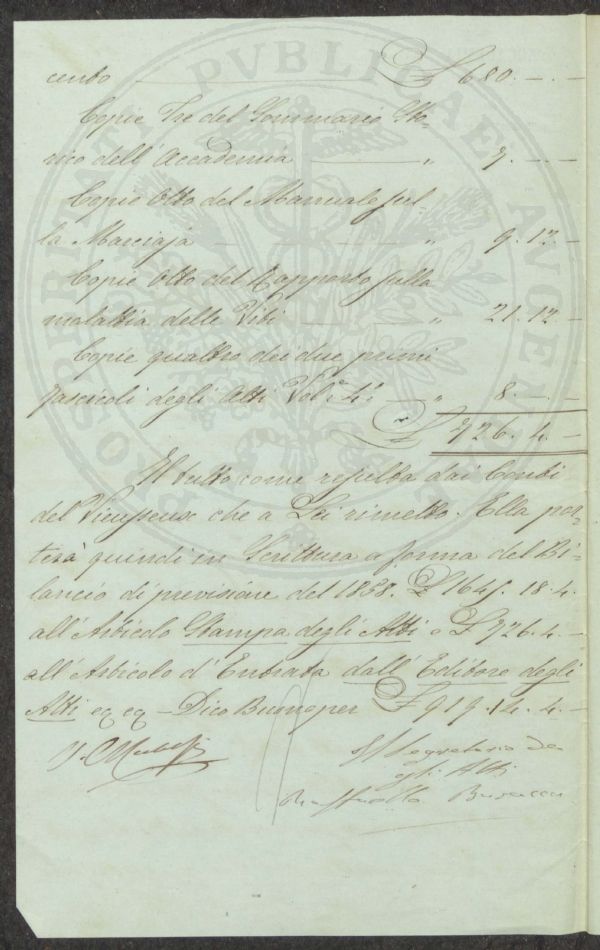 cento £ 680. — . —
Copie Tre del Sommario Sto-
rico dell'Accademia — " 7. — . —
Copie Otto del Manuale sul-
la Marciaja — " 9. 12. —
Copie Otto del Rapporto sulla
malattia delle Viti — " 21. 12. —
Copie quattro dei due primi
fascicoli degli Atti Vol: 4° — " 8. — . —
£ 726. 4. —
Il tutto come resulta dai Conti
del Vieusseux che a Lei rimetto. Ella por-
terà quindi in Scrittura a forma del Bi-
lancio di previsione del 1858. £ 1645. 18. 4.
all'Articolo Stampa degli Atti e £ 726. 4. —
all'Articolo d'Entrata dall'Editore degli
Atti — Dico Buono per £ 919. 14. 4. —
Il Segretario de
gli Atti
Raffaello Busacca
PUBLICAE